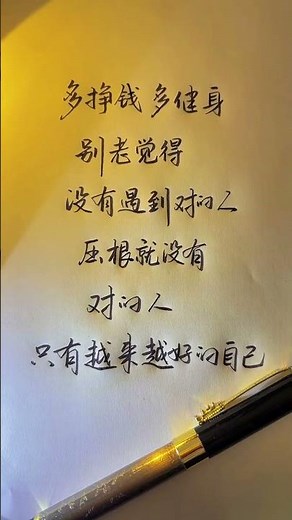 多挣钱 多健身
别老觉得
没有遇到对的人
压根就没有
对的人
只有越来越好的自己